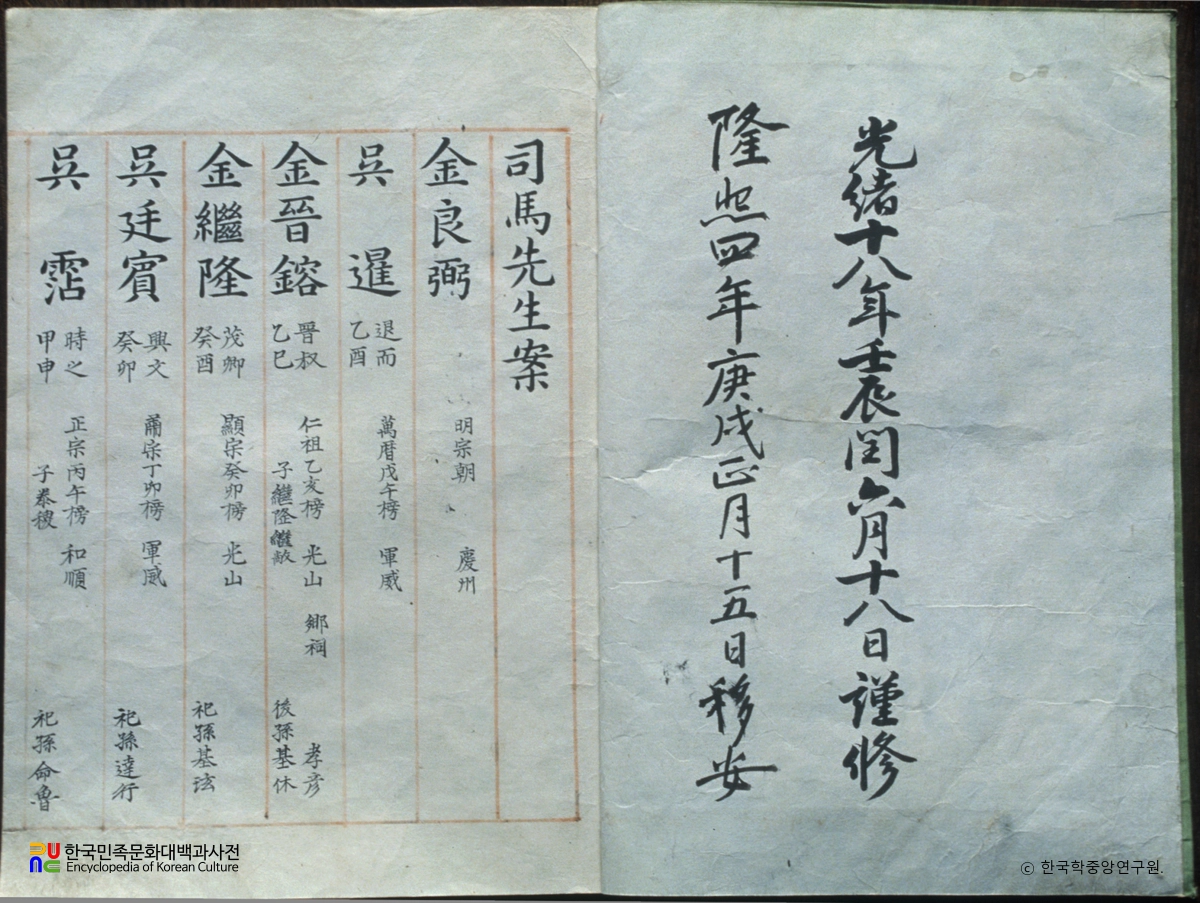 光緖十八年壬辰閏六月十八日謹修
隆熙四年庚戌正月十五日移安
司馬先生案
金良弼 明宗朝 慶州
吳暹 退而 乙酉 萬曆戊午榜 軍威
金晉鎔 晋叔 乙巳 仁祖乙亥榜 子繼隆繼敵 光山 鄕祠 孝彦 後孫基休
金繼隆 茂卿 癸酉 顯宗癸卯榜 光山 祀孫基法
吳廷賓 興文 癸卯 肅宗丁卯榜 軍威 祀孫達行
吳霑 時之 甲申 正宗丙午榜 子泰稷 和順 祀孫命魯
한국민족문화대백과사전
Encyclopedia of Korean Culture
ⓒ 한국학중앙연구원.